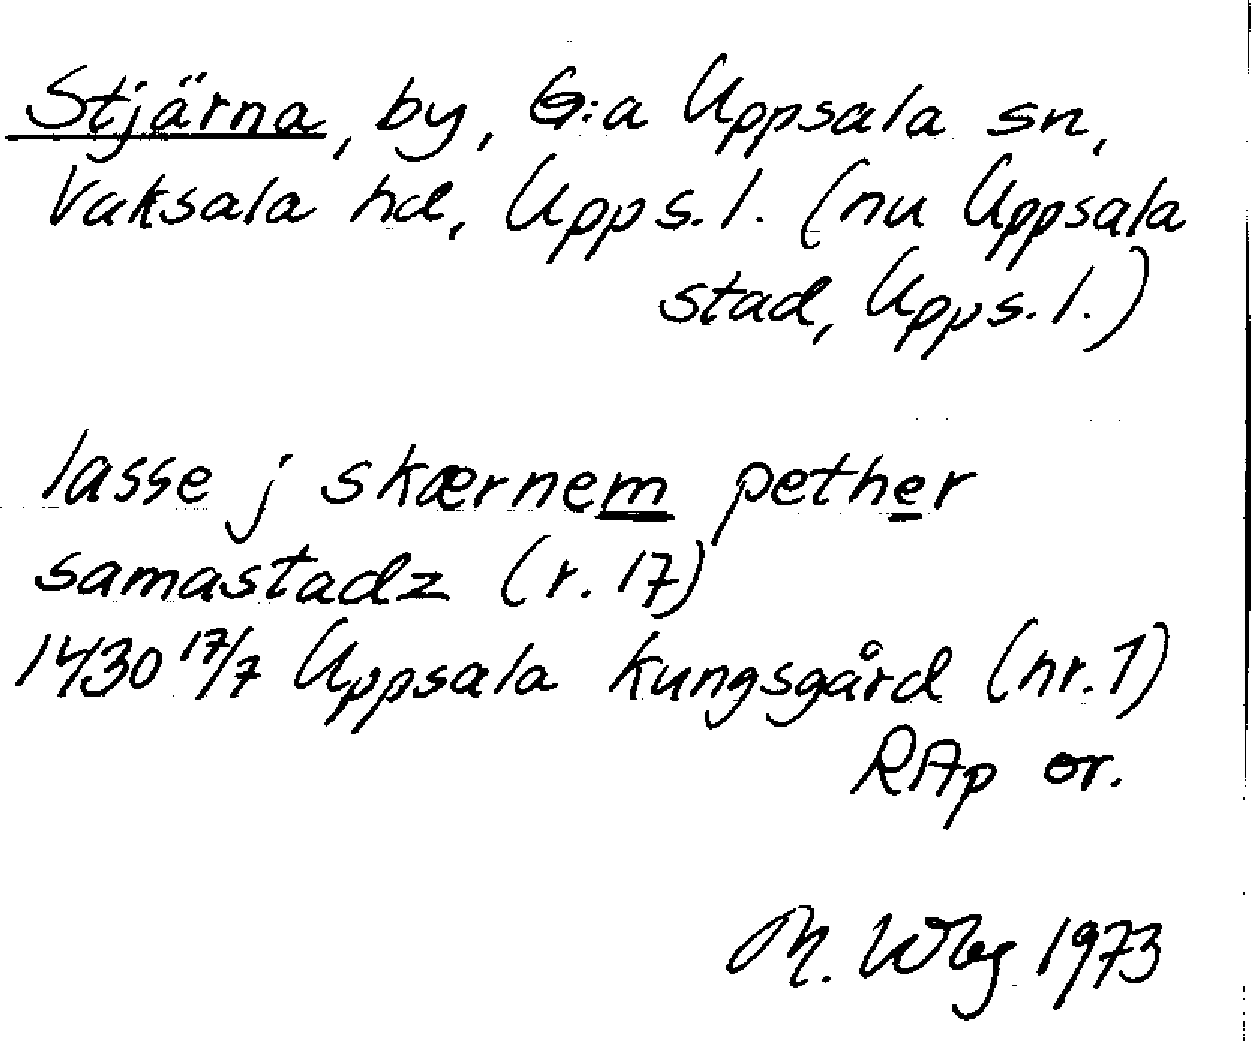 Stjärna, by, G:a Uppsala sn,
Vaksala hd, Upps. l. (nu Uppsala
stad, Upps. l.)
lasse j skærnem pether
samastadz (r. 17)
1430 17/7 Uppsala kungsgård (nr. 1)
RAp or.
M. Wbg 1973